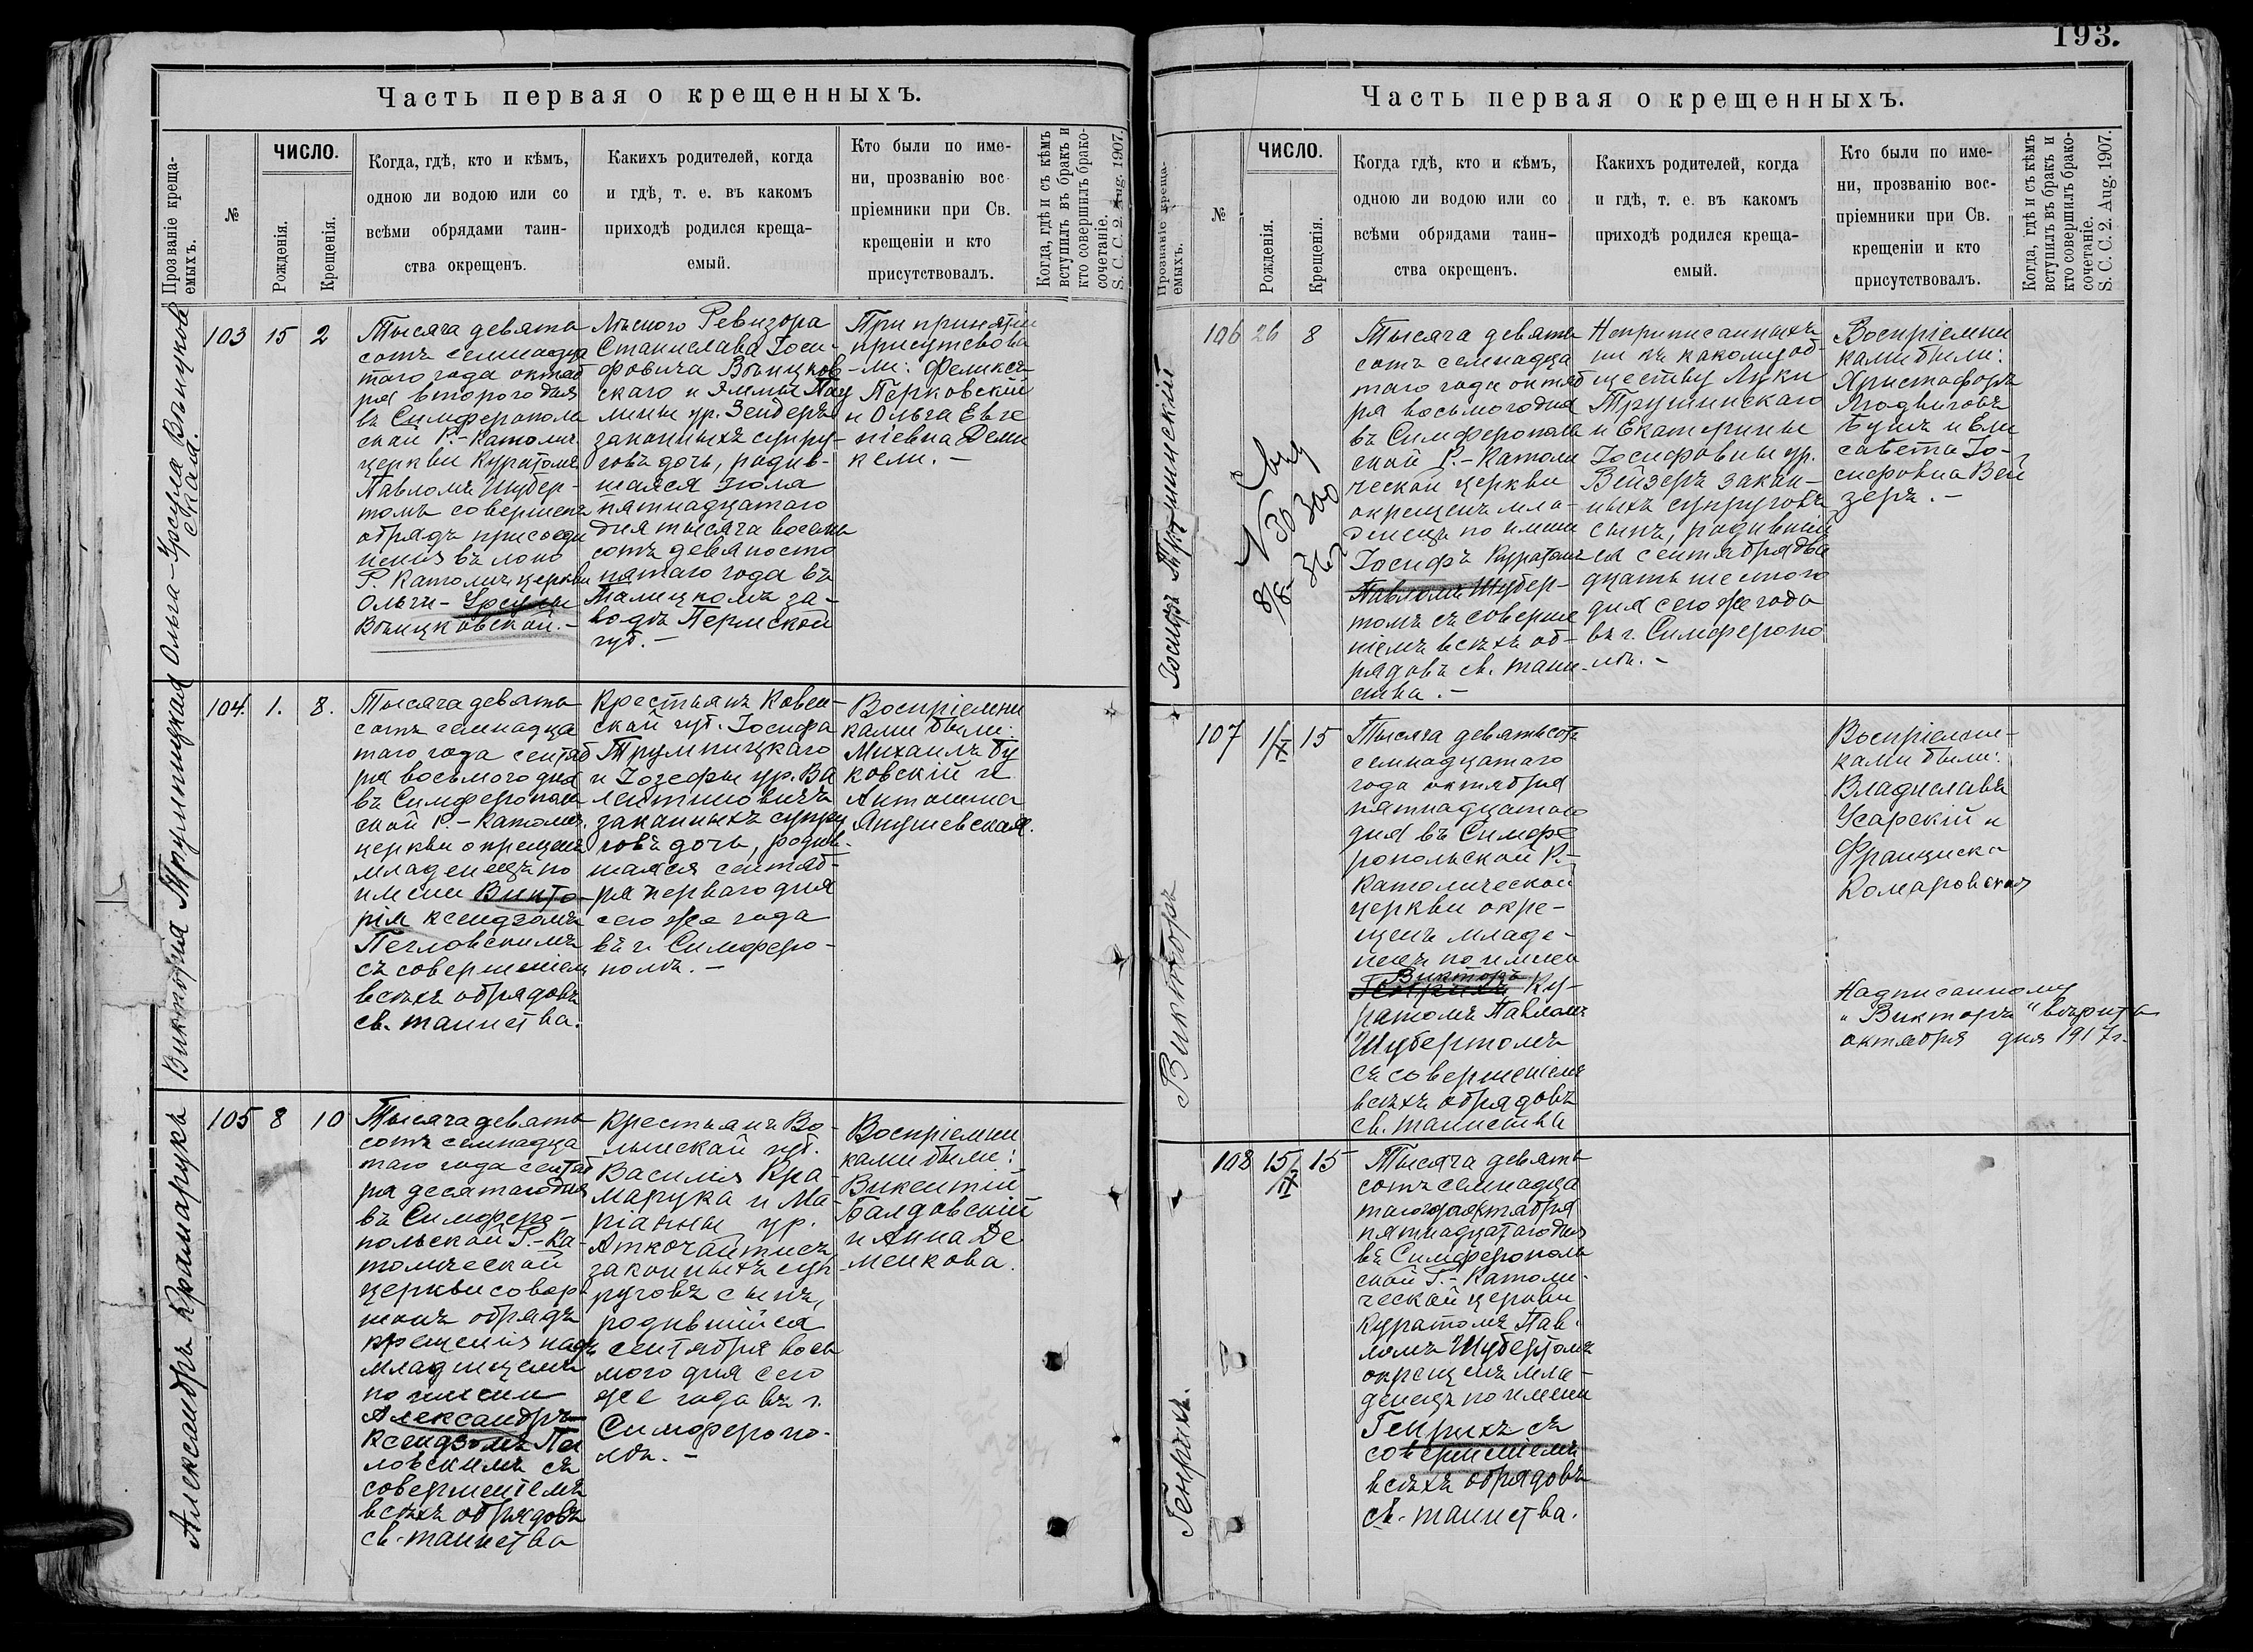 193.
Часть первая о крещенныхъ.
Прозваніе креща-
емыхъ.
№
ЧИСЛО.
Рожденія.
Крещенія.
Когда, гдѣ, кто и кѣмъ,
одною ли водою или со
всѣми обрядами таин-
ства окрещенъ.
Какихъ родителей, когда
и гдѣ, т. е. въ какомъ
приходѣ родился креща-
емый.
Кто были по име-
ни, прозванію вос
пріемники при Св.
крещеніи и кто
присутствовалъ.
Когда, гдѣ и съ кѣмъ
вступилъ въ бракъ и
кто совершилъ брако-
сочетаніе.
S. C. C. 2. Aug. 1907.
Ольга-Урсула
103
15
2
Тысяча девять
сотъ семнадца
таго года октяб
ря второго дня
въ Симферополь
ской Р.-Католич.
церкви Куратомъ
Павломъ Шубер-
томъ совершенъ
обрядъ присоеди
ненія въ лоно
Р. Католич. церкви
Ольги-Урсулы
Лѣсного Ревизора
Станислава Іоси-
фовича
скаго и Эммы Пау
лины ур. Зендеръ
законныхъ супру-
говъ дочь, родив-
шаяся Іюля
пятнадцатаго
дня тысяча восемь
сотъ девяносто
пятаго года въ
Талицкомъ за-
водѣ Пермской
губ.-
При принятіи
присутствова
ли: Феликсъ
Перковскій
и Ольга Евге
ніевна
Викторія Трумпицкая
104.
1.
8.
Тысяча девять
сотъ семнадца
таго года сентяб
ря восьмого дня
въ Симферополь
ской Р.-Католич.
церкви окрещенъ
младенецъ по
имени Викто-
рія ксендзомъ
съ совершеніем
всѣхъ обрядовъ
св. таинства.
Крестьянъ Ковен-
ской губ. Іосифа
Трумпицкаго
и Іозефы ур. Ва
лентиновичъ
законныхъ супру
говъ дочь, родив-
шаяся сентяб-
ря перваго дня
сего же года
въ г. Симферо-
полѣ.-
Воспріемни
ками были:
Михаилъ Бу
ковскій и
Антонина
Янушевская.
Александръ Крамарукъ
105
8
10
Тысяча девять
сотъ семнадца
таго года сентяб
ря десятаго дня
въ Симферо-
польской Р.-Ка-
толической
церкви совер
шенъ обрядъ
крещенія надъ
младенцемъ
по имени
Александръ
ксендзомъ
ловскимъ съ
совершеніемъ
всѣхъ обрядовъ
св. таинства
Крестьянъ Во-
лынской губ.
Василія Кра-
марука и Ма-
ріанны ур.
законныхъ суп-
руговъ сынъ,
родившійся
сентября вось
мого дня сего
же года въ г.
Симферопо-
лѣ.-
Воспріемни
ками были:
Викентій
Балдовскій
и Анна Де
менкова.
Часть первая о крещенныхъ.
Прозваніе креща-
емыхъ.
№
ЧИСЛО.
Рожденія.
Крещенія.
Когда гдѣ, кто и кѣмъ,
одною ли водою или со
всѣми обрядами таин-
ства окрещенъ.
Какихъ родителей, когда
и гдѣ, т. е. въ какомъ
приходѣ родился креща-
емый.
Кто были по име-
ни, прозванію вос-
пріемники при Св.
крещеніи и кто
присутствовалъ.
Когда, гдѣ и съ кѣмъ
вступилъ въ бракъ и
кто совершилъ брако-
сочетаніе.
S. C. C. 2. Aug. 1907.
Іосифъ Трушинскій
106
26
8
Тысяча девять
сотъ семнадца
таго года октяб
ря восьмого дня
въ Симферополь
ской Р.-Католи
ческой церкви
окрещенъ мла-
денецъ по имени
Іосифъ Куратомъ
Павломъ Шубер-
томъ съ соверше
ніемъ всѣхъ об-
рядовъ св. таин-
ства.-
Неприписанныхъ
ни къ какому об-
ществу Луки
Трушинскаго
и Екатерины
Іосифовны ур.
Вейзеръ закон-
ныхъ супруговъ
сынъ, родившій
ся сентября два
дцать шестого
дня сего же года
въ г. Симферопо
лѣ.-
Воспріемни
ками были:
Христофоръ
и Ели
савета Іо-
сифовна Вей
зеръ.-
Викторъ
107
1/X
15
Тысяча девятьсотъ
семнадцатаго
года октября
пятнадцатаго
дня въ Симфе
ропольской Р.-
Католической
церкви окре-
щенъ младе-
нецъ по имени
Викторъ
Генрихъ Ку-
ратомъ Павломъ
Шубертомъ
съ совершеніемъ
всѣхъ обрядовъ
св. таинства
Воспріемни-
ками были:
Владиславъ
Усарскій и
Франциска
Комаровская
Надписанному
„Викторъ“ вѣрить
октября дня 1917 г.
Генрихъ.
108
15/IX
15
Тысяча девять
сотъ семнадца
таго года октября
пятнадцатаго дня
въ Симферополь
ской Р.-Католи-
ческой церкви
Куратомъ Пав-
ломъ Шубертомъ
окрещенъ мла-
денецъ по имени
Генрихъ съ
совершеніемъ
всѣхъ обрядовъ
св. таинства.